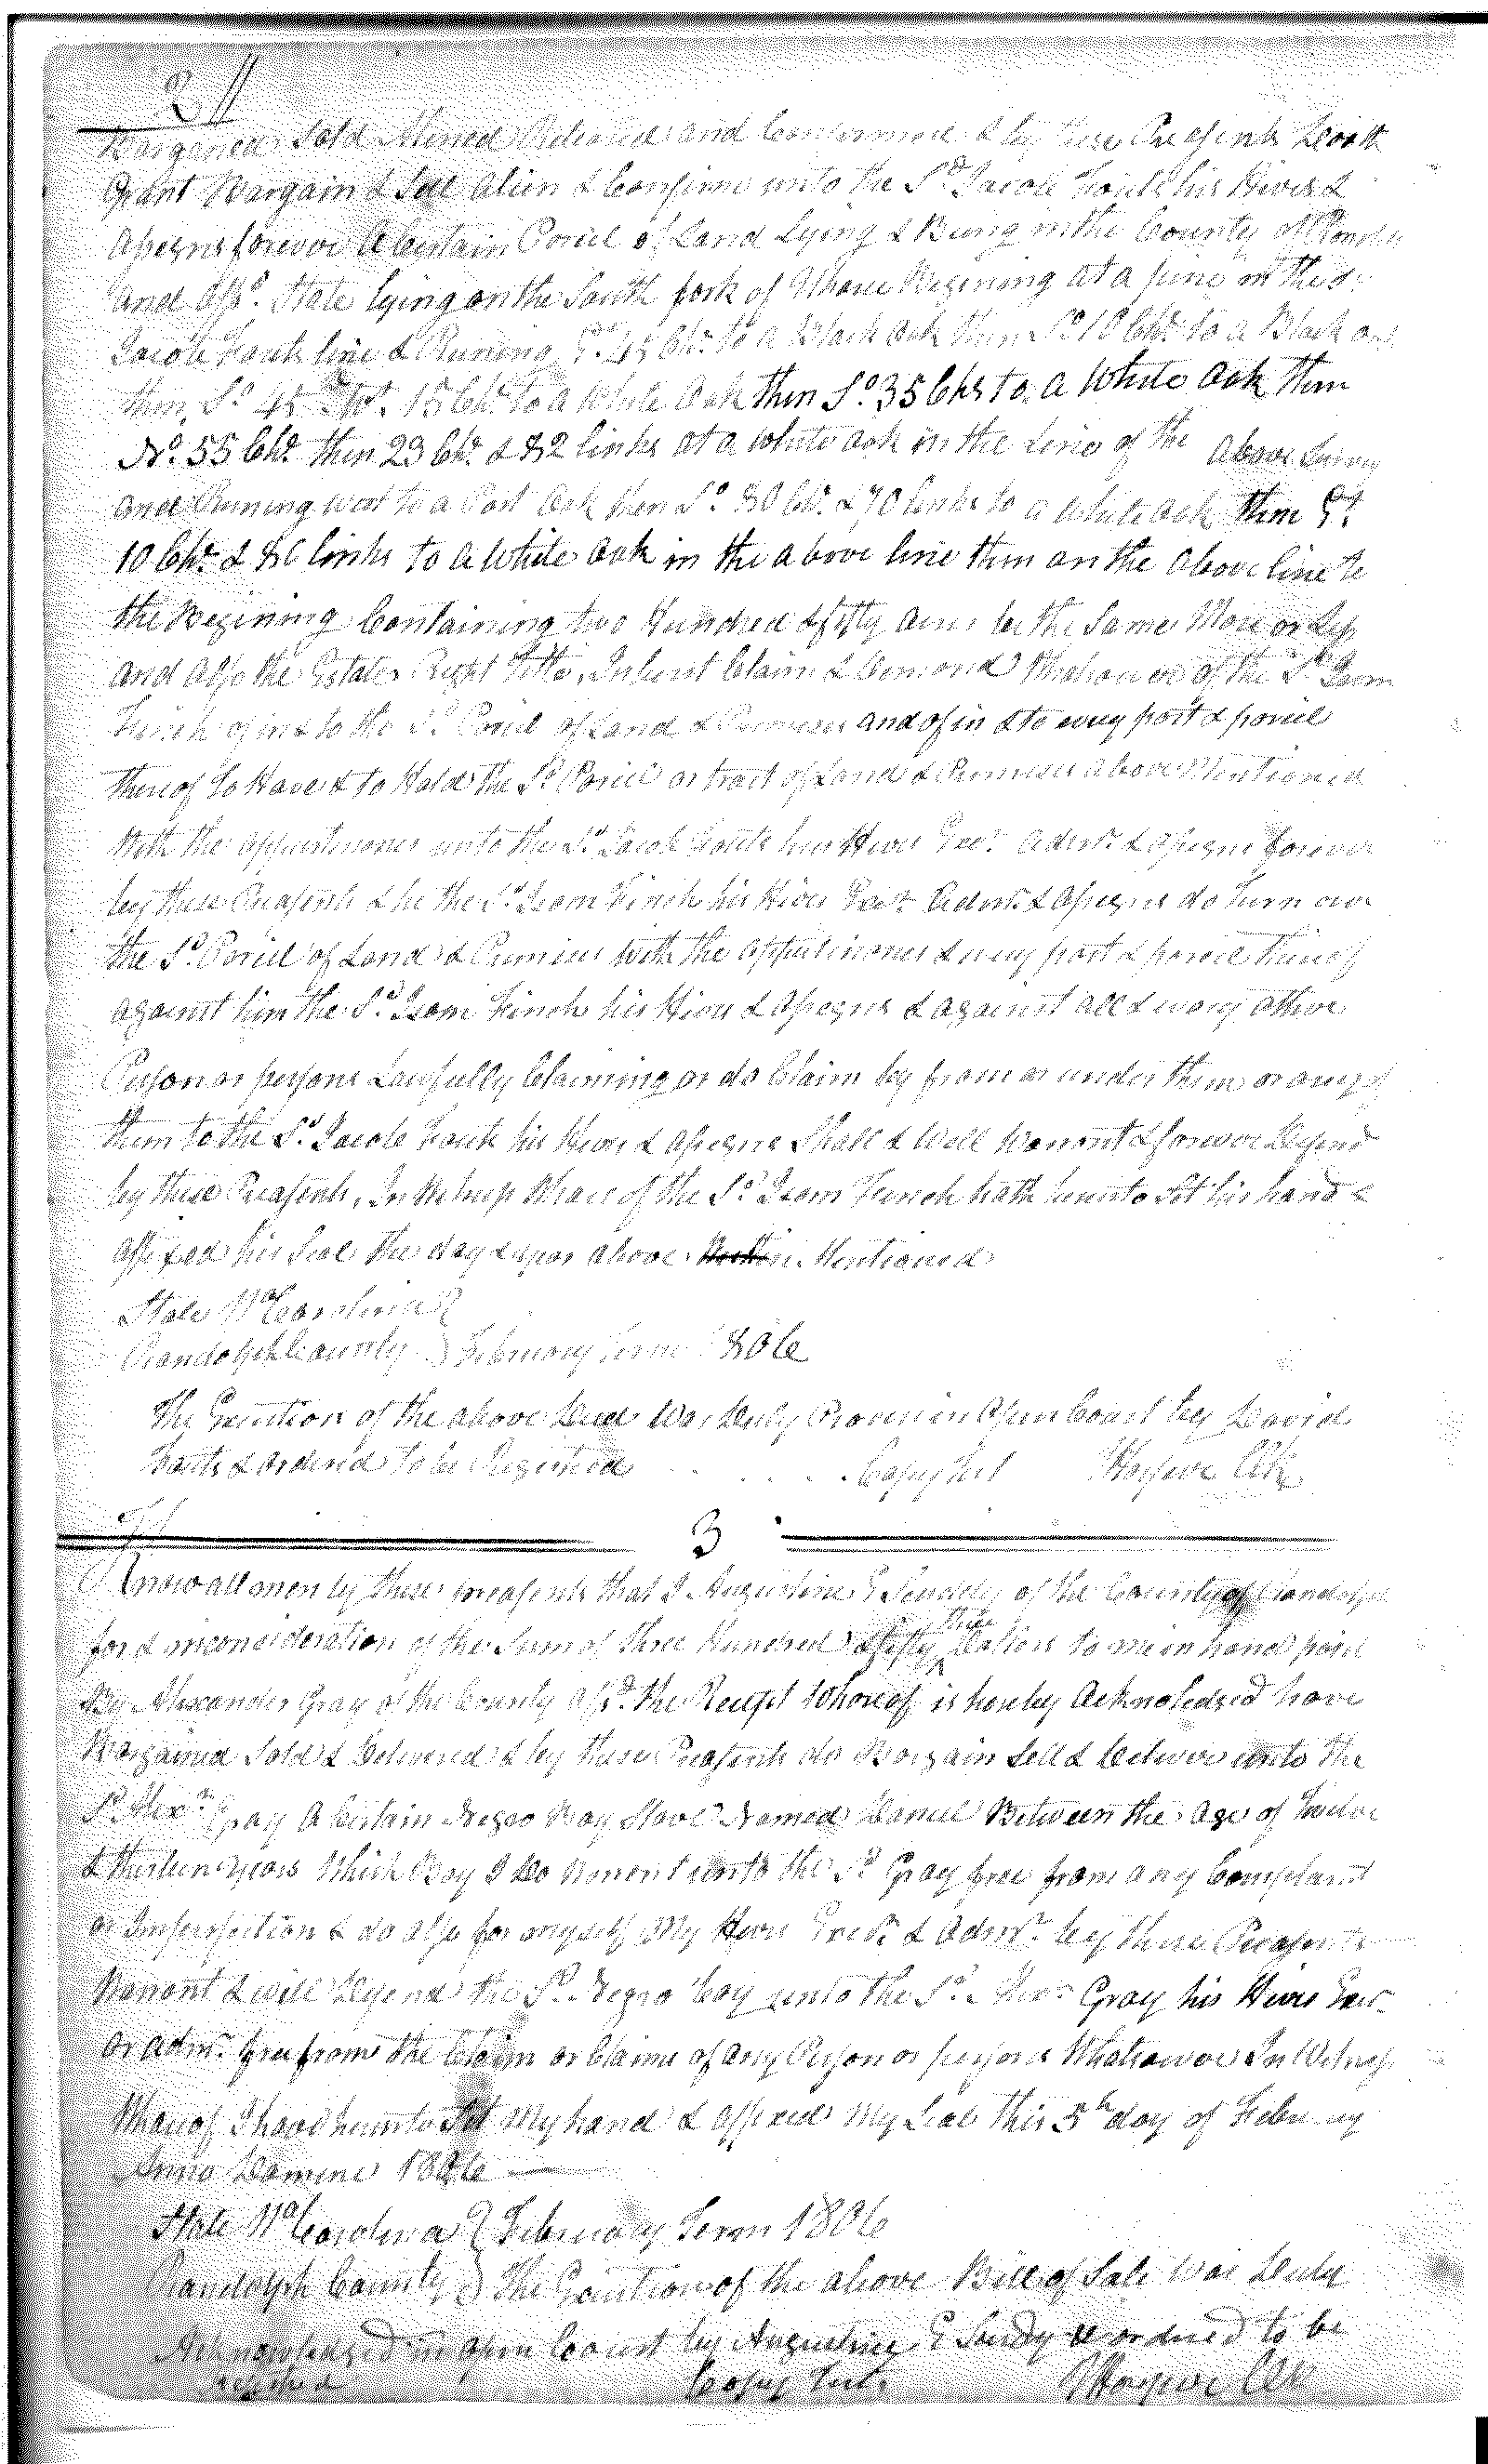 2
Bargened Sold Aliened Released and Confirmed & by these Preasents Doath
Grant Bargain & Sell Alien & Confirm unto the Sd. Jacob Fouts his Hires &
Assegns forevor A Certain Porcel of Land Lying & Being in the County of Randh
and Afsd. State lying on the South fork of Uharie Begining at a pine in the sd.
Jacob Fouts line & Runing Et. 45 Chs. to a Black Oak then So 10 Chs. to a Black oak
then So. 45 Wt. 15 Chs. to a White Oak then So. 35 Chs to a White Oak then
No. 55 Chs. then 23 Chs. & 82 links at a white oak in the Line of the above Survey
and Runing West to a Post Oak then So. 30 Chs. & 70 links to a White oak then Et.
10 Chs. & 86 links to a White Oak in the above line then on the above line to
the Begining Containing two Hundred & fifty acres be the Same More or Less
and Also the Estate Right Title, Intrust Claim & Demond Whatsoever of the Sd. Isom
Finch of in & to the Sd. Porcel of Land & Premises and of in & to every part & porcel
thereof To Have & to Hold the Sd. Porcel or tract of Land & Premises above Mentioned
With the appurtinances unto the Sd. Jacob Fouts his Hires Exr. Admr. & Assegns forever
by these Preasents & he the Sd. Isom Finch his Hires Exr. Admr. & Assegns do
the Sd. Porcel of Land & Premises with the appurtinances & every part & porcel thereof
against him the Sd. Isom Finch his Hires & Assegns & against all & every other
Person or persons Lawfully Claiming or do Claim by from or under them or any of
them to the Sd. Jacob Fouts his Hires & Assegns Shall & Will Warrant & forever Defend
by these Preasents, In Witness Whareof the Sd. Isom Finch hath hereunto Set his hand &
affixed his Seal the day & year above Mentioned
State No Carolina
Randolph County } February Term 1806
The Execution of the above Deed Was Duly Proven in Open Court by David
Fouts & ordered to be Registered . . . . . Copy Test J Harper Clk
3
Know all men by these preasents that I Augustine E Sendely of the County of Randolph
for & in concideration of the Sum of three Hundred & fifty three Dollars to me in hand paid
By Alexander Gray of the County Afsd. the Receipt Whareof is hereby Acknoledged have
Bargained Sold & Delivered & by these Preasents do Bargain Sell & Deliver unto the
Sd. Alexr. Gray A Certain Negro Boy Slave Named Daniel Between the Age of Twelve
& thirteen years Which Boy I Do Warrent unto the Sd. Gray free from any Complaint
or Imperfection & do also for myself My Hires Exrs. & Admr. by these Preasents
Warrant & will Defend the Sd. Negro boy unto the Sd. Alexr. Gray his Hires Exr.
or Admr. free from the Claim or Claims of any Person or persons Whatsoever In Witness
Whareof I have hereunto Set My hand & affixed My Seal this 5th day of February
Anno Domini 1806
State No Carolina } February Term 1806
Randolph County } The Execution of the above Bill of Sale Was Duly
Acknowledged in open Court by Augustine E Sendy & ordered to be
registred Copy Test. J Harper Clk